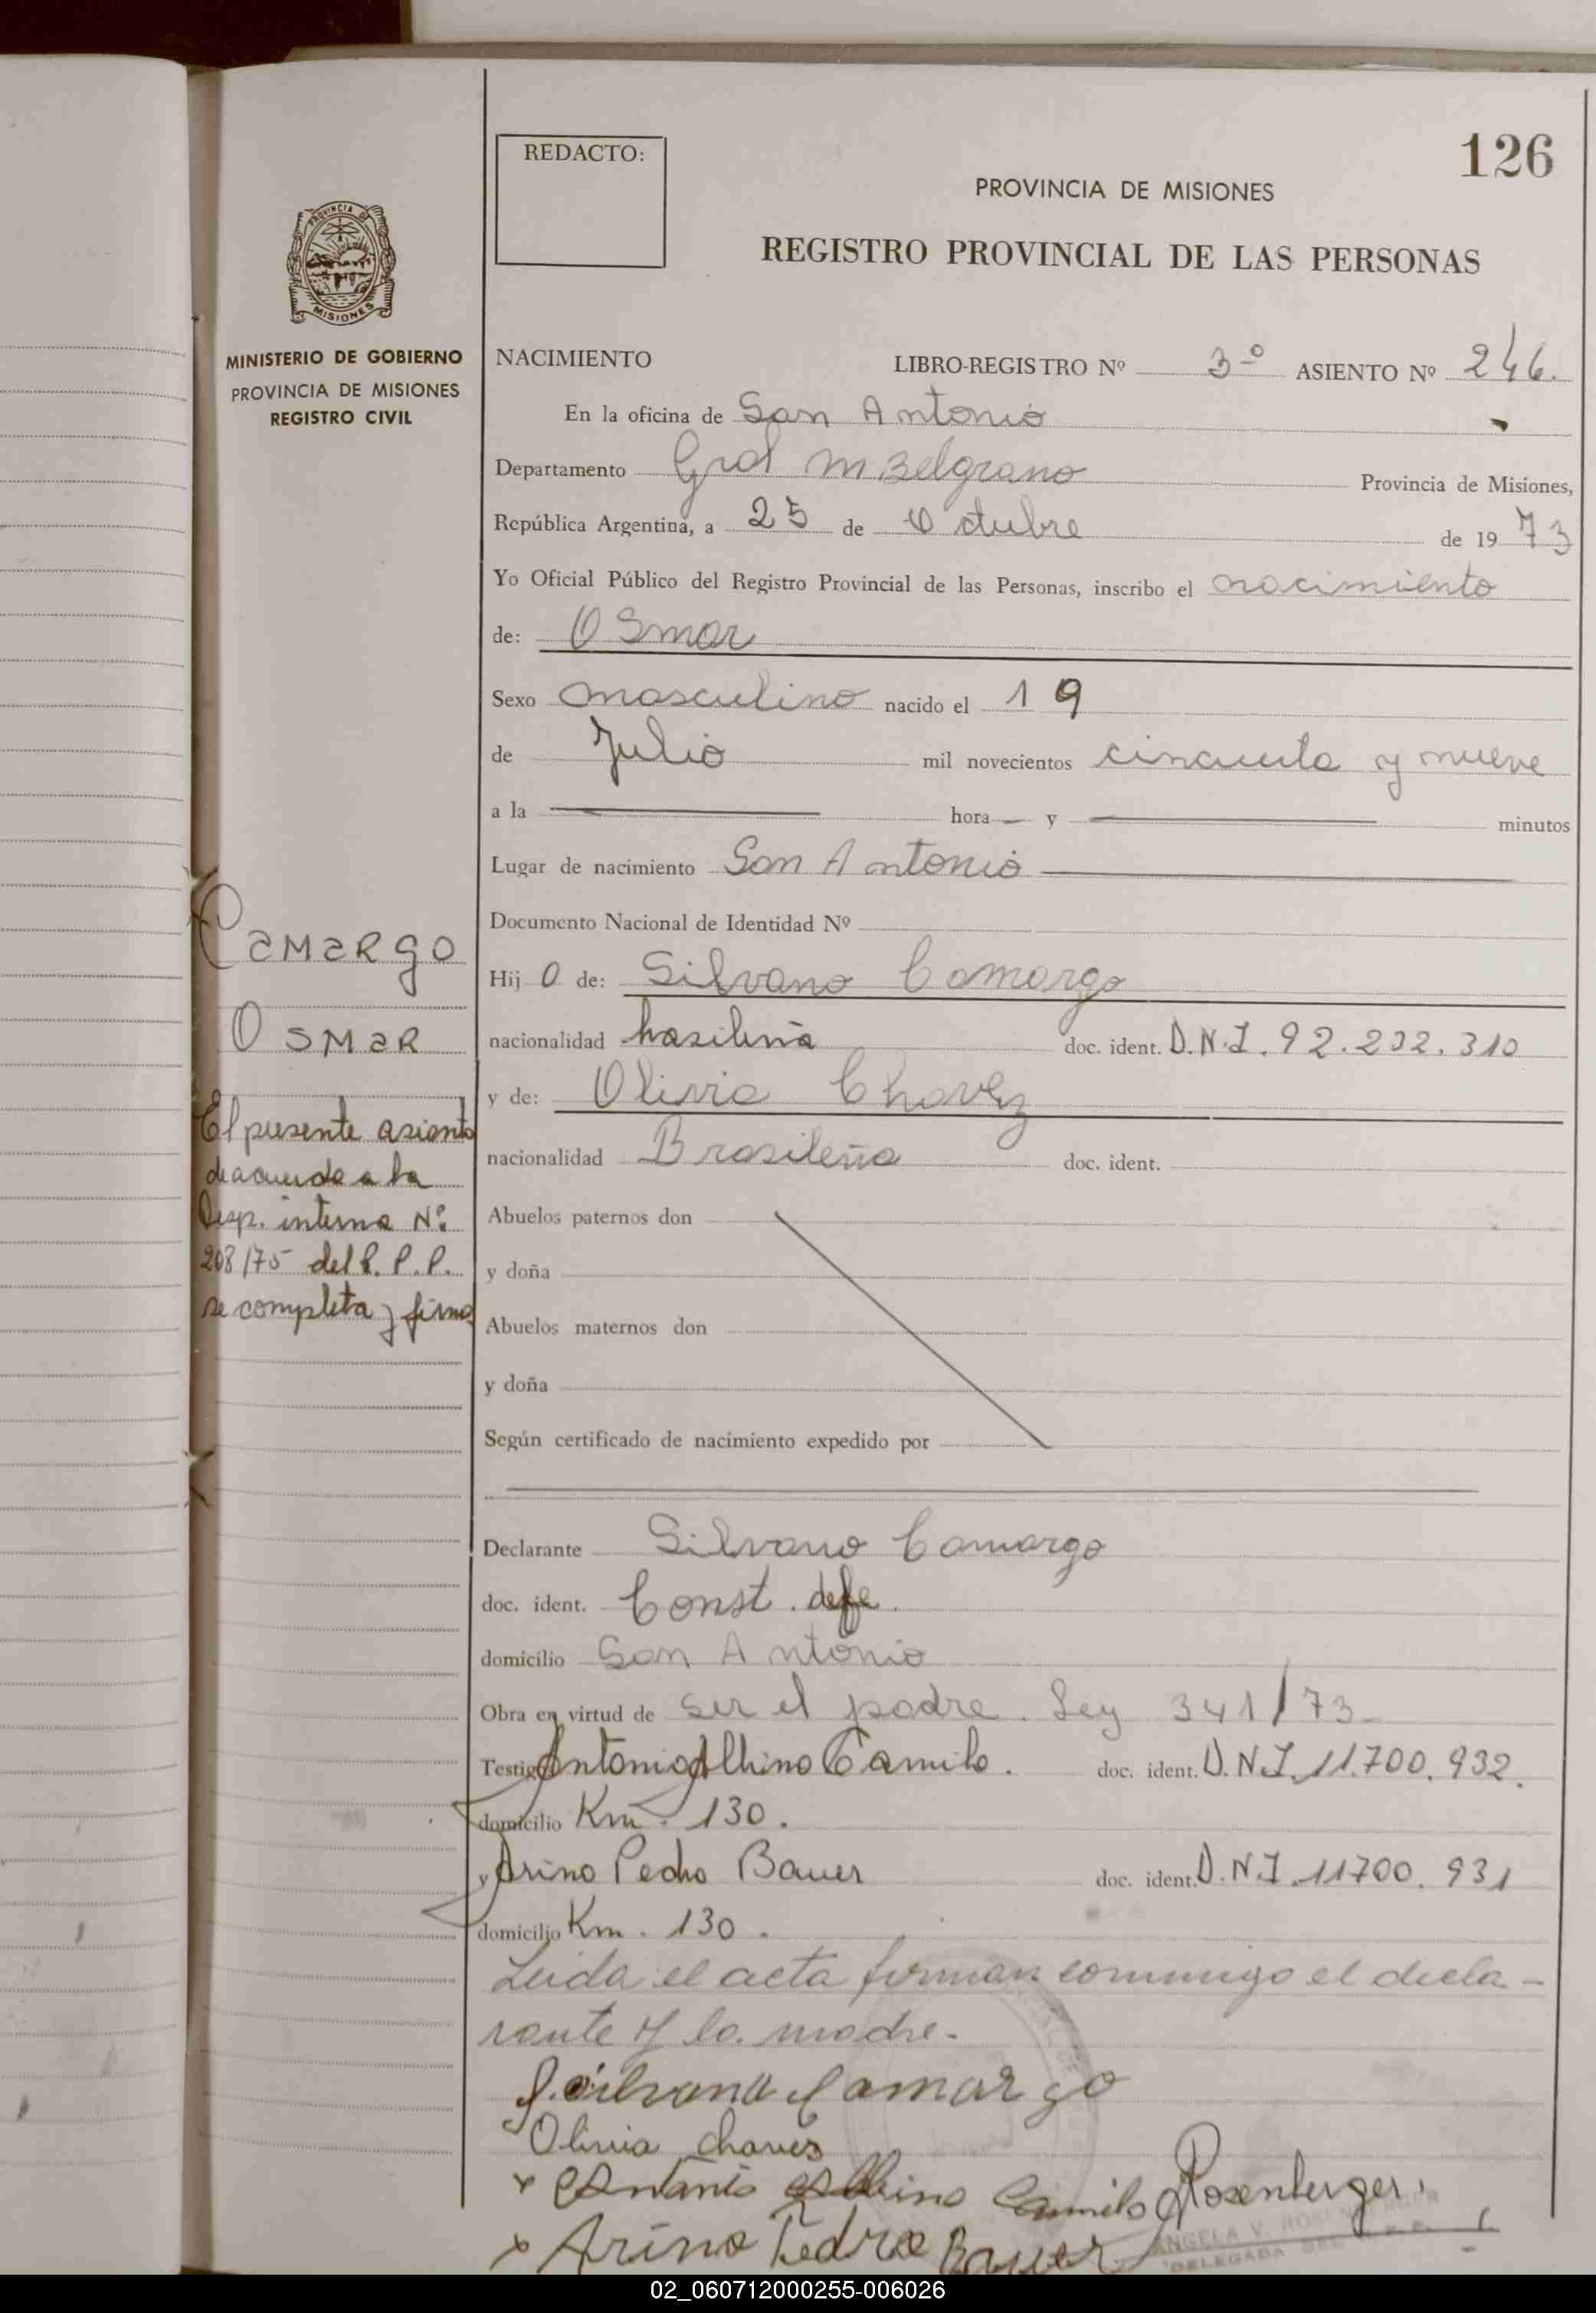 126
REDACTO:
PROVINCIA DE MISIONES
REGISTRO PROVINCIAL DE LAS PERSONAS
PROVINCIA DE
MISIONES
MINISTERIO DE GOBIERNO
PROVINCIA DE MISIONES
REGISTRO CIVIL
NACIMIENTO LIBRO-REGISTRO Nº 3º ASIENTO Nº 246.
En la oficina de San Antonio
Departamento Gral M Belgrano Provincia de Misiones,
República Argentina, a 25 de Octubre de 1973
Yo Oficial Público del Registro Provincial de las Personas, inscribo el nacimiento
de: Osmar
Sexo masculino nacido el 19
de Julio mil novecientos cincuenta y nueve
a la hora y minutos
Lugar de nacimiento San Antonio
Documento Nacional de Identidad Nº
Camargo
Osmar
El presente asiento
de acuerdo a la
Disp. interna Nº
208/75 del R. P. P.
se completa y firma
Hijo de: Silvano Camargo
nacionalidad brasileña doc. ident. D.N.I. 92.232.310
y de: Olivia Chavez
nacionalidad Brasileña doc. ident.
Abuelos paternos don
y doña
Abuelos maternos don
y doña
Según certificado de nacimiento expedido por
Declarante Silvano Camargo
doc. ident. Const. de fe.
domicilio San Antonio
Obra en virtud de ser el padre. Ley 341/73
Testigo Antonio Albino Camilo. doc. ident. D.N.I. 11.700.932.
domicilio Km. 130.
y Arino Pedro Bauer doc. ident. D.N.I. 11700.931
domicilio Km. 130.
Leida el acta firman conmigo el decla-
rante y la madre.
Silvano Camargo
Olivia Chaves
x Antonio Albino Camilo Rosenberger
x Arino Pedro Bauer
ANGELA V. ROSENBERGER
DELEGADA DEL R. P. P.
02_060712000255-006026